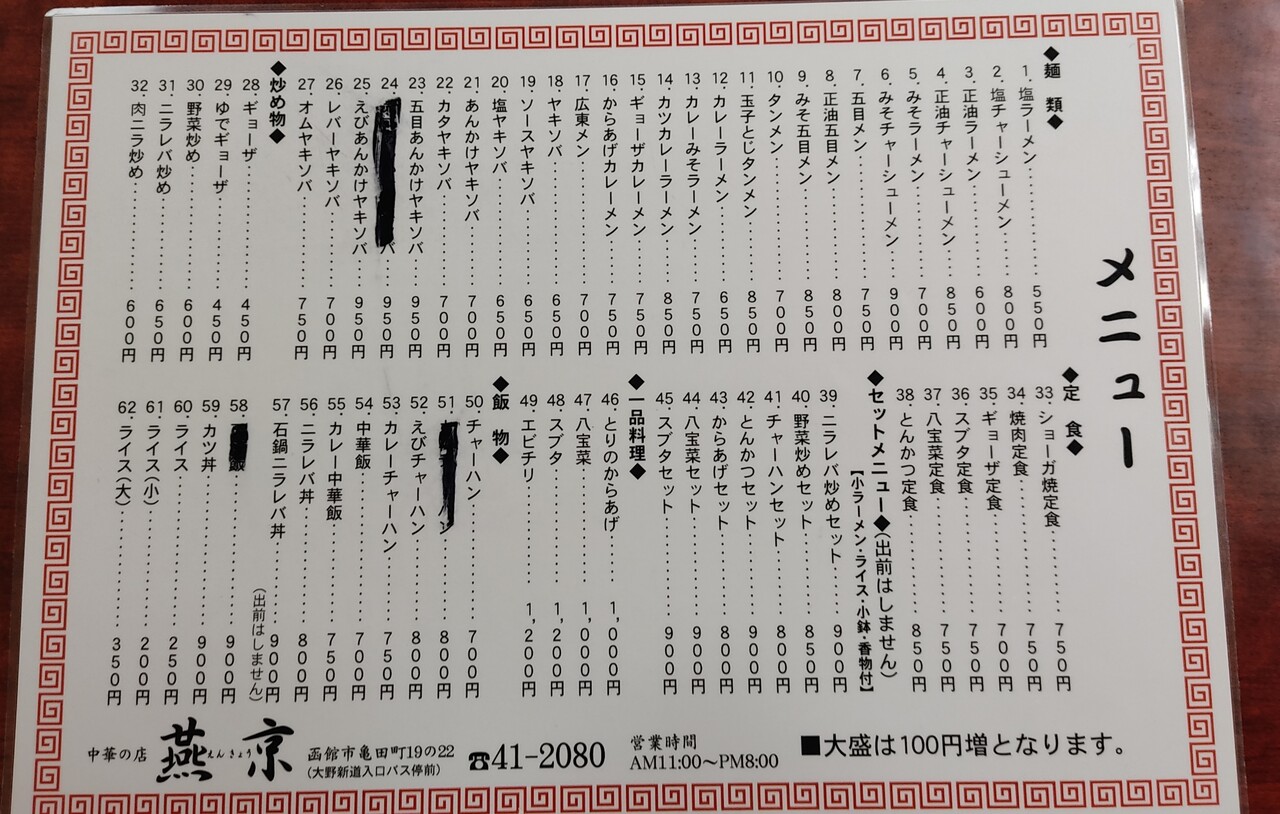 メニュー
◆麺類◆
1.塩ラーメン 550円
2.塩チャーシューメン 800円
3.正油ラーメン 600円
4.正油チャーシューメン 850円
5.みそラーメン 700円
6.みそチャーシューメン 900円
7.五目メン 750円
8.正油五目メン 850円
9.みそ五目メン 850円
10.タンメン 700円
11.玉子とじタンメン 850円
12.カレーラーメン 650円
13.カレーみそラーメン 750円
14.カツカレーラーメン 850円
15.ギョーザカレーメン 800円
16.からあげカレーメン 850円
17.広東メン 700円
18.ヤキソバ 650円
19.ソースヤキソバ 650円
20.塩ヤキソバ 650円
21.あんかけヤキソバ 700円
22.カタヤキソバ 700円
23.五目あんかけヤキソバ 950円
24. バ 950円
25.えびあんかけヤキソバ 950円
26.レバーヤキソバ 700円
27.オムヤキソバ 750円
◆炒め物◆
28.ギョーザ 450円
29.ゆでギョーザ 450円
30.野菜炒め 600円
31.ニラレバ炒め 650円
32.肉ニラ炒め 600円
◆定食◆
33.ショーガ焼定食 750円
34.焼肉定食 750円
35.ギョーザ定食 700円
36.スブタ定食 750円
37.八宝菜定食 750円
38.とんかつ定食 850円
◆セットメニュー◆(出前はしません)
【小ラーメン・ライス・小鉢・香物付】
39.ニラレバ炒めセット 900円
40.野菜炒めセット 850円
41.チャーハンセット 900円
42.とんかつセット 900円
43.からあげセット 800円
44.八宝菜セット 900円
45.スブタセット 900円
◆一品料理◆
46.とりのからあげ 1,000円
47.八宝菜 1,000円
48.スブタ 1,200円
49.エビチリ 1,200円
◆飯物◆
50.チャーハン 700円
51. ン 800円
52.えびチャーハン 800円
53.カレーチャーハン 750円
54.中華飯 700円
55.カレー中華飯 750円
56.ニラレバ丼 800円
57.石鍋ニラレバ丼 900円
(出前はしません)
58. 飯 900円
59.カツ丼 900円
60.ライス 250円
61.ライス(小) 200円
62.ライス(大) 350円
■大盛は100円増となります。
営業時間
AM11:00〜PM8:00
☎41-2080
函館市亀田町19の22
(大野新道入口バス停前)
中華の店 燕京 えんきょう